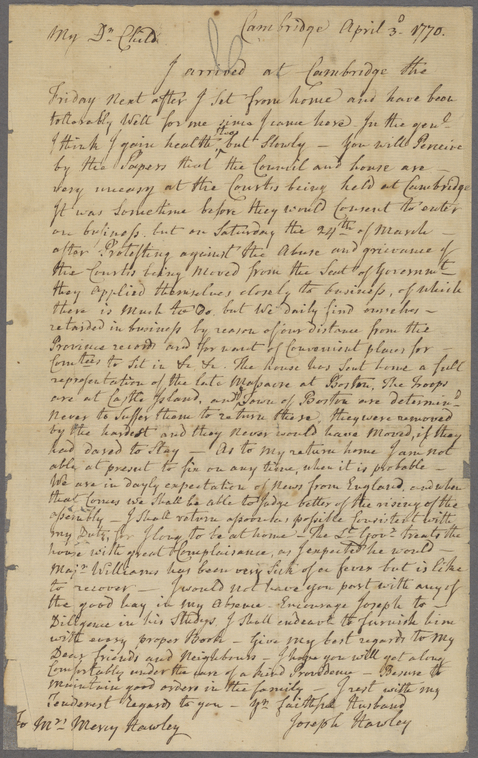 My Dr. Child
Cambridge April 3.o 1770.
I arrived at Cambridge the
Friday next after I set from home and have been
tollerably Well for me since I came here In the genl
I think I gain health tho but Slowly — You will Perceive
by the Papers that the Council and house are —
very uneasy at the Courts being held at Cambridge
It was Sometime before they would Consent to enter
on business. but on Saturday the 24th of March —
after Protesting against the Abuse and grievance of
the Courts being Moved from the Seat of Government
they applied themselves closely to business, of which
there is Much to Do, but We daily find ourselves —
retarded in business by reason of our distance from the
Province records and for want of Convenient places for —
Comtees to Sit in &c &c. The house has Sent home a full
representation of the late Massacre at Boston. The troops
are at Castle Island, and Town of Boston are determind
Never to Suffer them to return there, they were removed
by the hardest and they Never would have Moved, if they
had dared to Stay — As to my return home I am not
able at present to fix on any time, when it is probable —
We are in dayly expectation of News from England, and when
that Comes we Shall be able to Judge better of the rising of the
assembly — I Shall return assoon as possible Consistent with
my Duty, for I long to be at home — The Lt. Govr. treats the
house with great Complaisance, as I expected he would —
Majr. Williams has been very Sick of a fever but is like
to recover — I would not have you part with any of
the good hay in my Absence — Encourage Joseph to —
Diligence in his Studys. I shall endeavr. to furnish him
with every proper Book — Give my best regards to My
Dear friends and Neighbours — I hope you will get along
Comfortably under the care of a kind Providence — Besure to
maintain good orders in the family — I rest with my
Tenderest regards to you — Yr. faithful Husband
Joseph Hawley
To Mrs Mercy Hawley